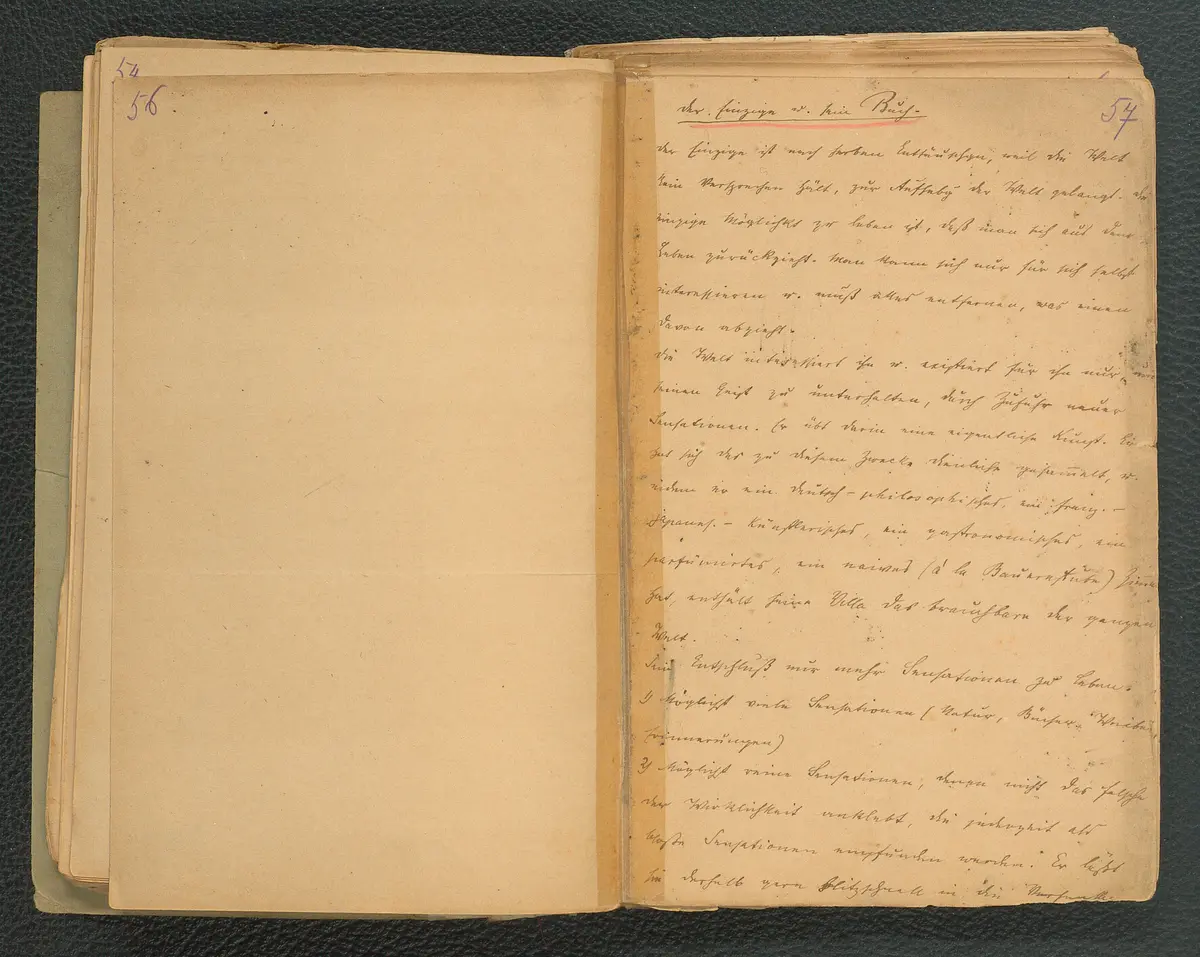 54
56
57
der Einzige u. sein Buch.
der Einzige ist nach herben Enttäuschgn, weil die Welt
kein Versprechen hält, zur Aufhebg der Welt gelangt. die
einzige Möglichkt zu leben ist, daß man sich aus dem
Leben zurückzieht. Man kann sich nur für sich selbst
interessieren u. muß alles entfernen, was einen
davon abzieht.
die Welt interessiert ihn u. existiert für ihn nur, um
seinen Geist zu unterhalten, durch Zufuhr neuer
Sensationen. Er übt darin eine eigentliche Kunst. Er
hat sich das zu diesem Zwecke dienliche gesammelt, u.
indem er ein deutsch-philosophisches, ein franz.-
japanes.-künstlerisches, ein gastronomisches, ein
parfümirtes, ein naives (à la Bauernstube) Zimmer
hat, enthält seine Villa das brauchbare der ganzen
Welt.
Sein Entschluß nur mehr Sensationen zu leben.
1) Möglichst viele Sensationen (Natur, Bücher, Weiber,
Erinnerungen)
2) Möglichst reine Sensationen, denen nicht das falsche
der Wirklichkeit anklebt, die jederzeit als
bloße Sensationen empfunden werden. Er läßt
sie deshalb gern blitzschnell in die